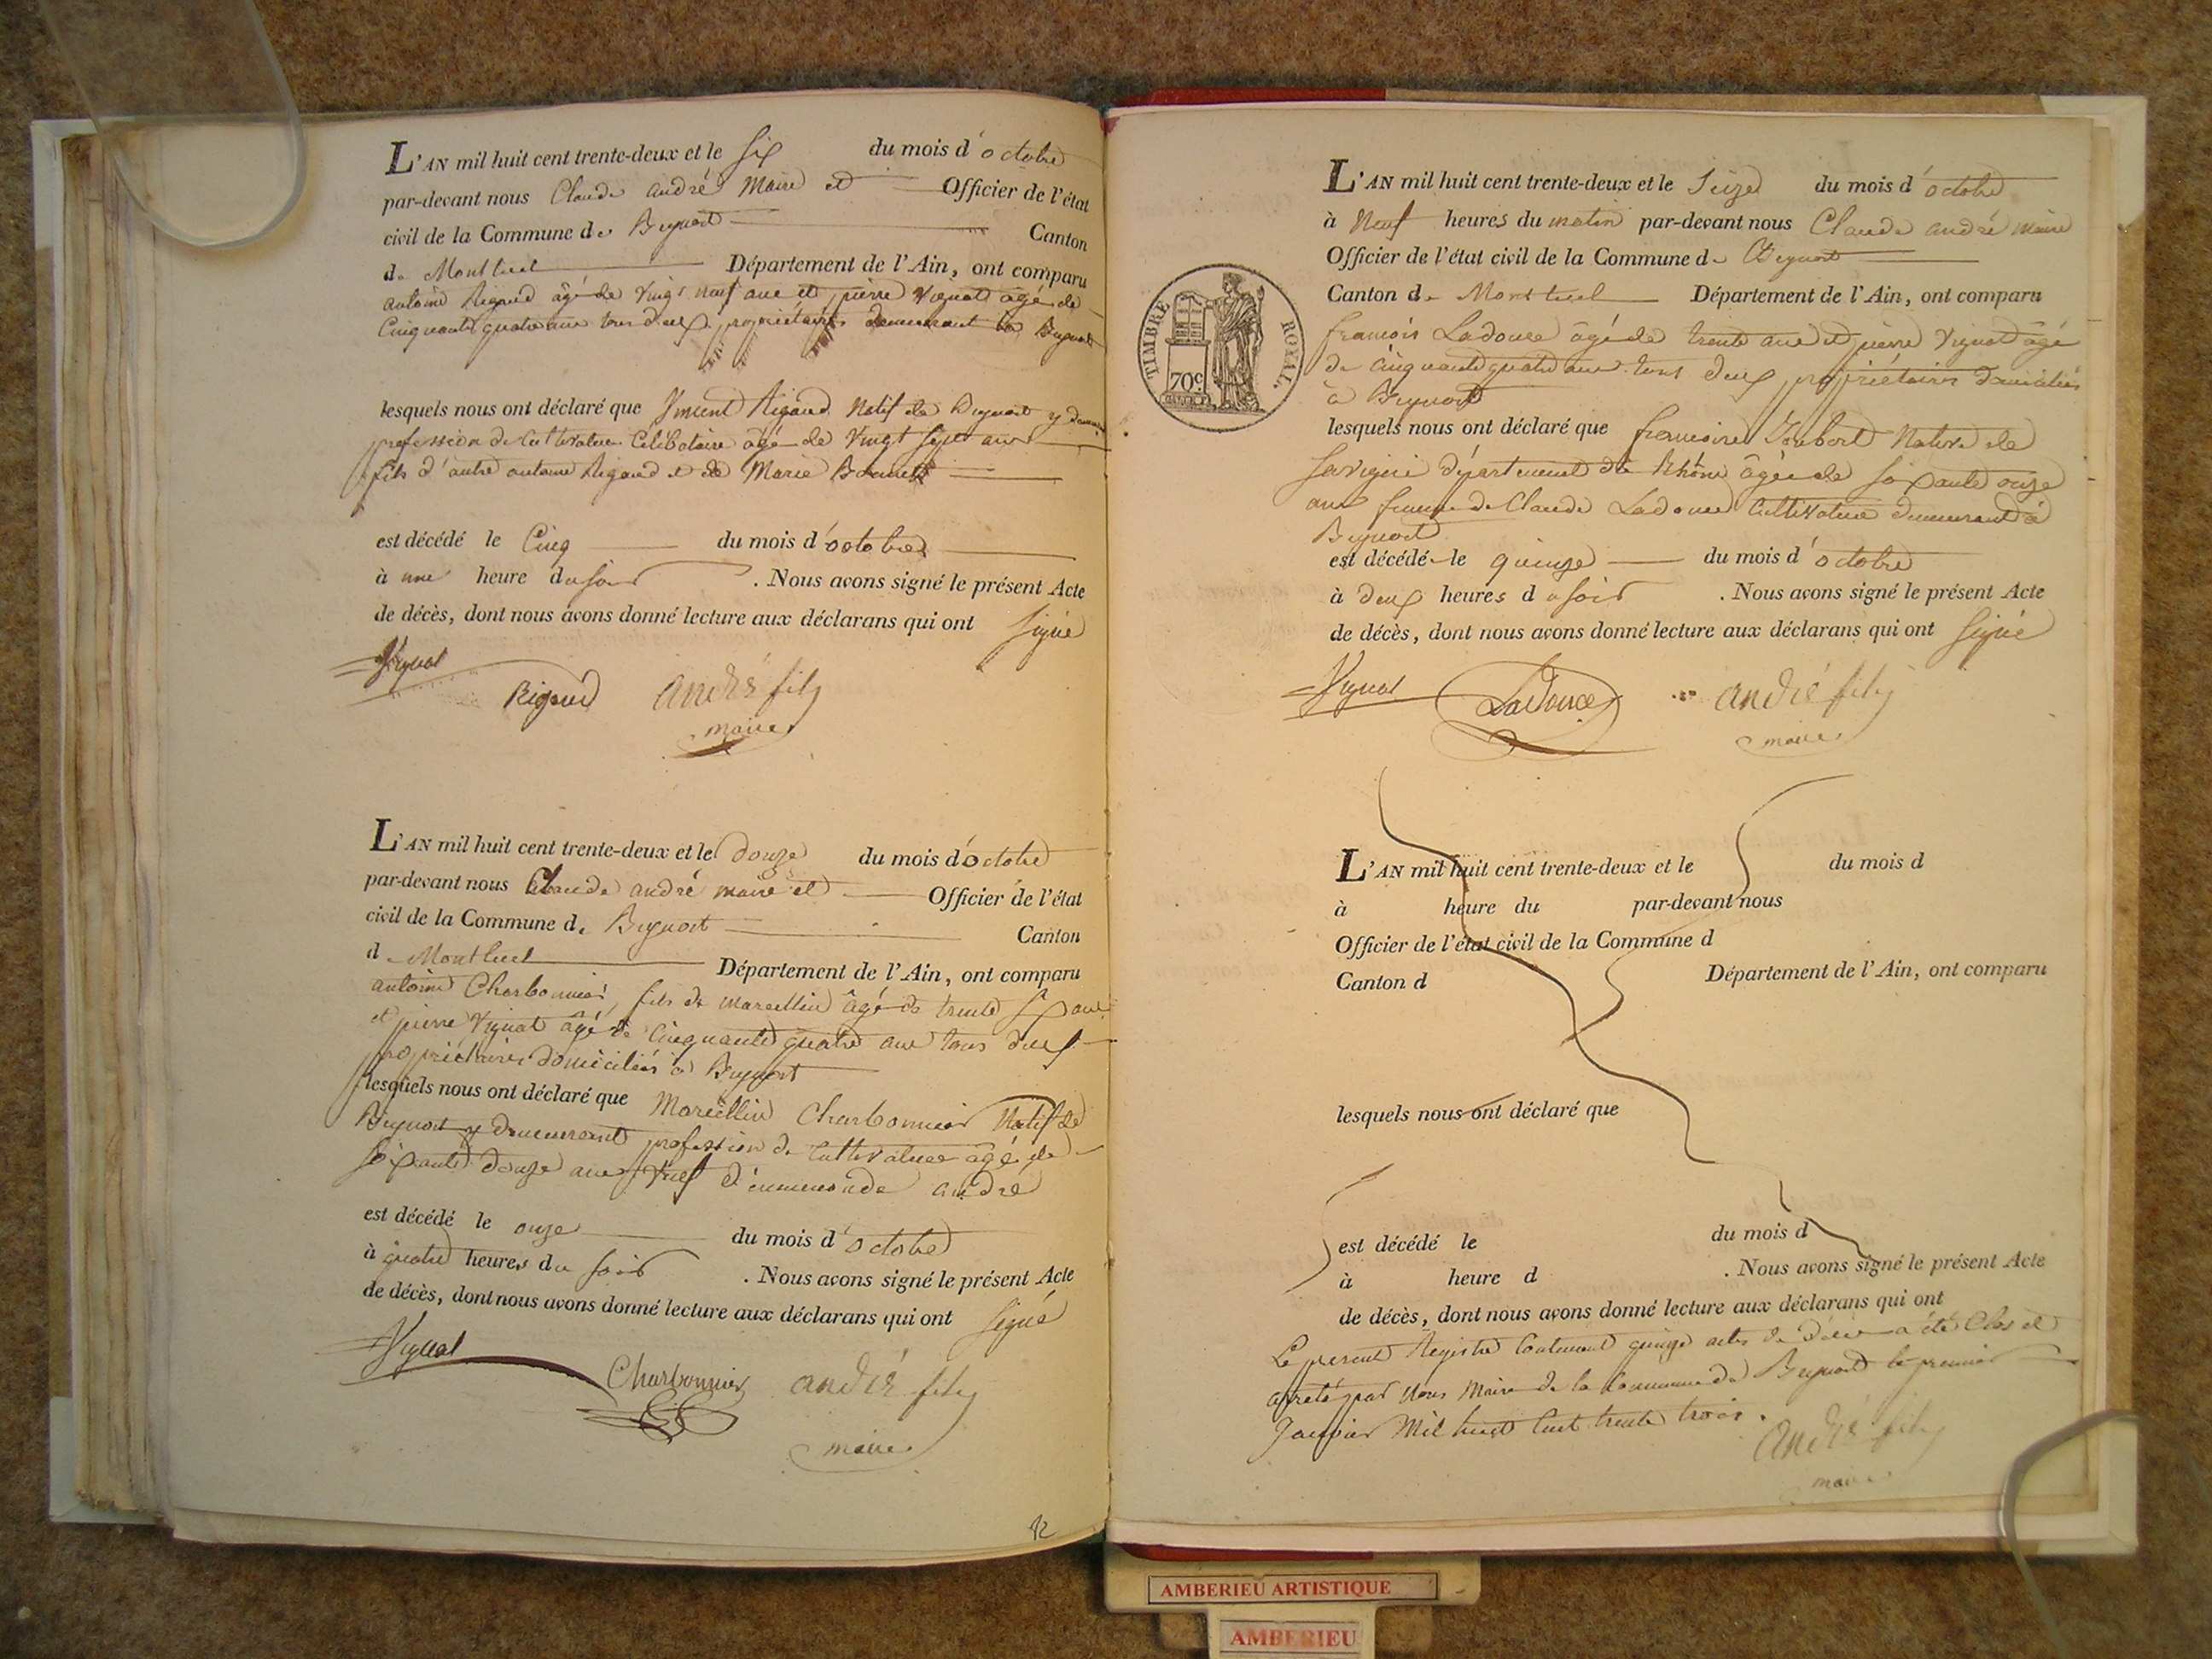 L'AN mil huit cent trente-deux et le six du mois d'octobre
par-devant nous Claude andré Maire et Officier de l'état
civil de la Commune de Beynost Canton
de Montluel Département de l'Ain, ont comparu
antoine Rigaud âgé de vingt neuf ans et pierre Vignat âgé de
Cinquante quatre ans tous deux propriétaires demeurant à Beynost
lesquels nous ont déclaré que Vincent Rigaud Natif de Beynost y
profession de Cultivateur Célibataire âgé de vingt sept ans
fils d'autre antoine Rigaud et de Marie
est décédé le Cinq du mois d'octobre
à une heure du soir . Nous avons signé le présent Acte
de décès, dont nous avons donné lecture aux déclarans qui ont signé
Vignat
Rigaud andré fils
maire
L'AN mil huit cent trente-deux et le douze du mois d'octobre
par-devant nous Claude andré maire et Officier de l'état
civil de la Commune de Beynost Canton
de Montluel Département de l'Ain, ont comparu
antoine Charbonnier fils de marcellin âgé de trente six ans
et pierre Vignat âgé de Cinquante quatre ans tous deux
propriétaires domiciliés à Beynost
lesquels nous ont déclaré que Marcellin Charbonnier Natif de
Beynost y demeurant profession de Cultivateur âgé de
soixante douze ans veuf d'ennemonde andré
est décédé le onze du mois d'octobre
à quatre heures du soir . Nous avons signé le présent Acte
de décès, dont nous avons donné lecture aux déclarans qui ont signé
Vignat
Charbonnier andré fils
maire
92
L'AN mil huit cent trente-deux et le Seize du mois d'octobre
à Neuf heures du matin par-devant nous Claude andré maire
Officier de l'état civil de la Commune de Beynost
Canton de Montluel Département de l'Ain, ont comparu
TIMBRE ROYAL.
70c
francois Ladouce âgé de trente ans et pierre Vignat âgé
de Cinquante quatre ans tous deux propriétaires domiciliés
à Beynost
lesquels nous ont déclaré que francoise Native de
Savigni département du Rhône âgée de soixante onze
ans femme de Claude Ladouce Cultivateur demeurant à
Beynost
est décédé le quinze du mois d'octobre
à deux heures du soir . Nous avons signé le présent Acte
de décès, dont nous avons donné lecture aux déclarans qui ont signé
Vignat Ladouce andré fils
maire
L'AN mil huit cent trente-deux et le du mois d
à heure du par-devant nous
Officier de l'état civil de la Commune d
Canton d Département de l'Ain, ont comparu
lesquels nous ont déclaré que
est décédé le du mois d
à heure d . Nous avons signé le présent Acte
de décès, dont nous avons donné lecture aux déclarans qui ont
Le present Registre Contenant quinze actes de décès a été Clos et
arreté par Nous Maire de la Commune de Beynost le premier
Janvier Mil huit Cent trente trois.
andré fils
maire
AMBERIEU ARTISTIQUE
AMBERIEU